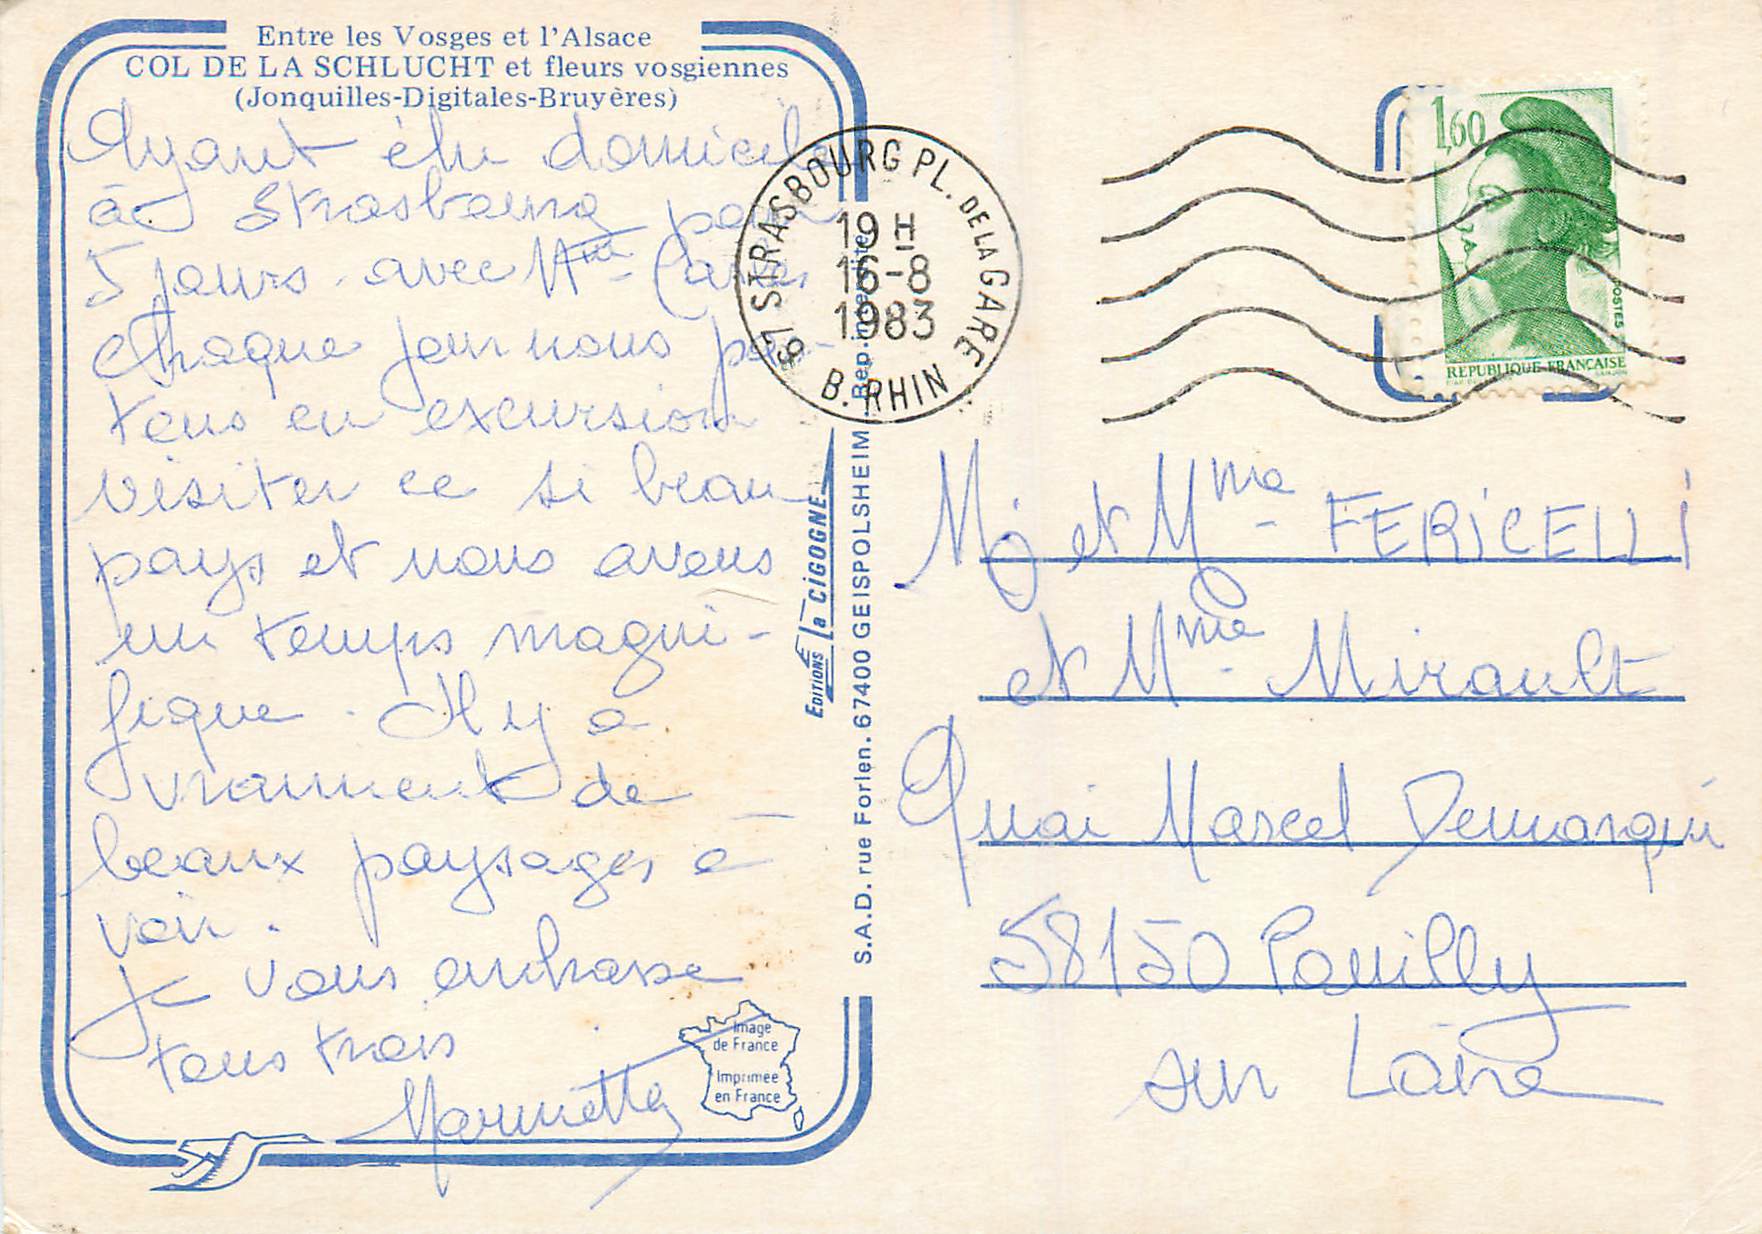 Entre les Vosges et l'Alsace
COL DE LA SCHLUCHT et fleurs vosgiennes
(Jonquilles-Digitales-Bruyères)
Ayant élu domicile
à Strasbourg pour
5 jours. avec Mme
Chaque jour nous par-
tons en excursion
visiter ce si beau
pays et nous avons
un temps magni-
fique. Il y a
vraiment de
beaux paysages à
voir.
Je vous embrasse
tous trois
Image
de France
Imprimée
en France
EDITIONS la CIGOGNE
S.A.D. rue Forlen. 67400 GEISPOLSHEIM. Rep. interdite
67 STRASBOURG PL. DE LA GARE
19 H
16-8
1983
B. RHIN
1,60
POSTES
REPUBLIQUE FRANÇAISE
M. et Mme FERICELLI
et Mme Mirault
Quai Marcel
58150 Pouilly
sur Loire